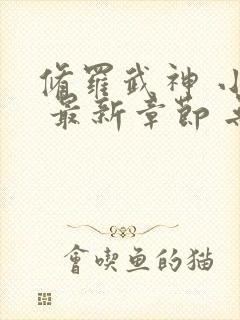 修羅武神 小
最新章節
會喫魚的猫